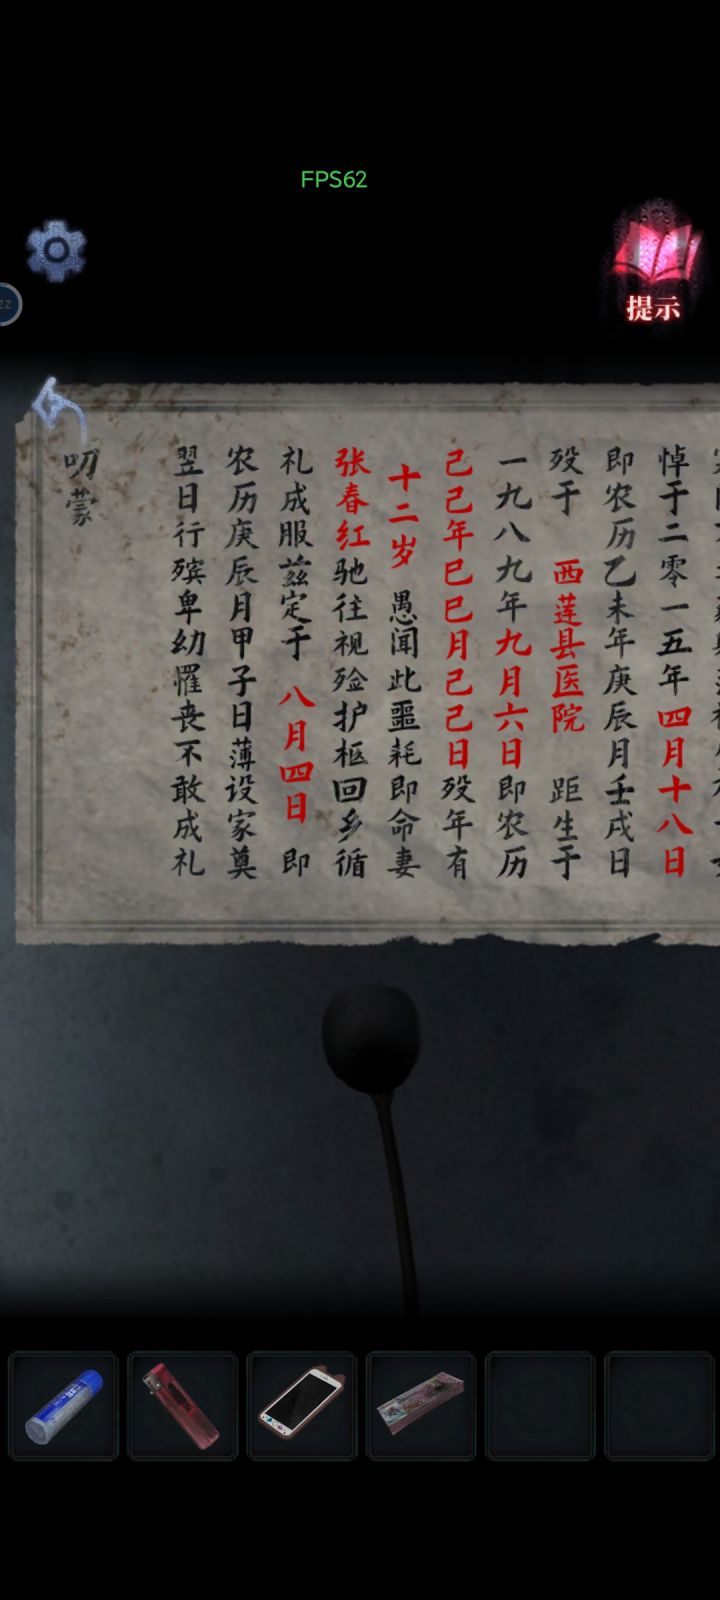 FPS62
提示
zz
悼于二零一五年四月十八日
即农历乙未年庚辰月壬戌日
殁于 西莲县医院 距生于
一九八九年九月六日即农历
己己年巳巳月己己日殁年有
十二岁 愚闻此噩耗即命妻
张春红驰往视殓护柩回乡循
礼成服兹定于 八月四日 即
农历庚辰月甲子日薄设家奠
翌日行殡卑幼罹丧不敢成礼
叨蒙